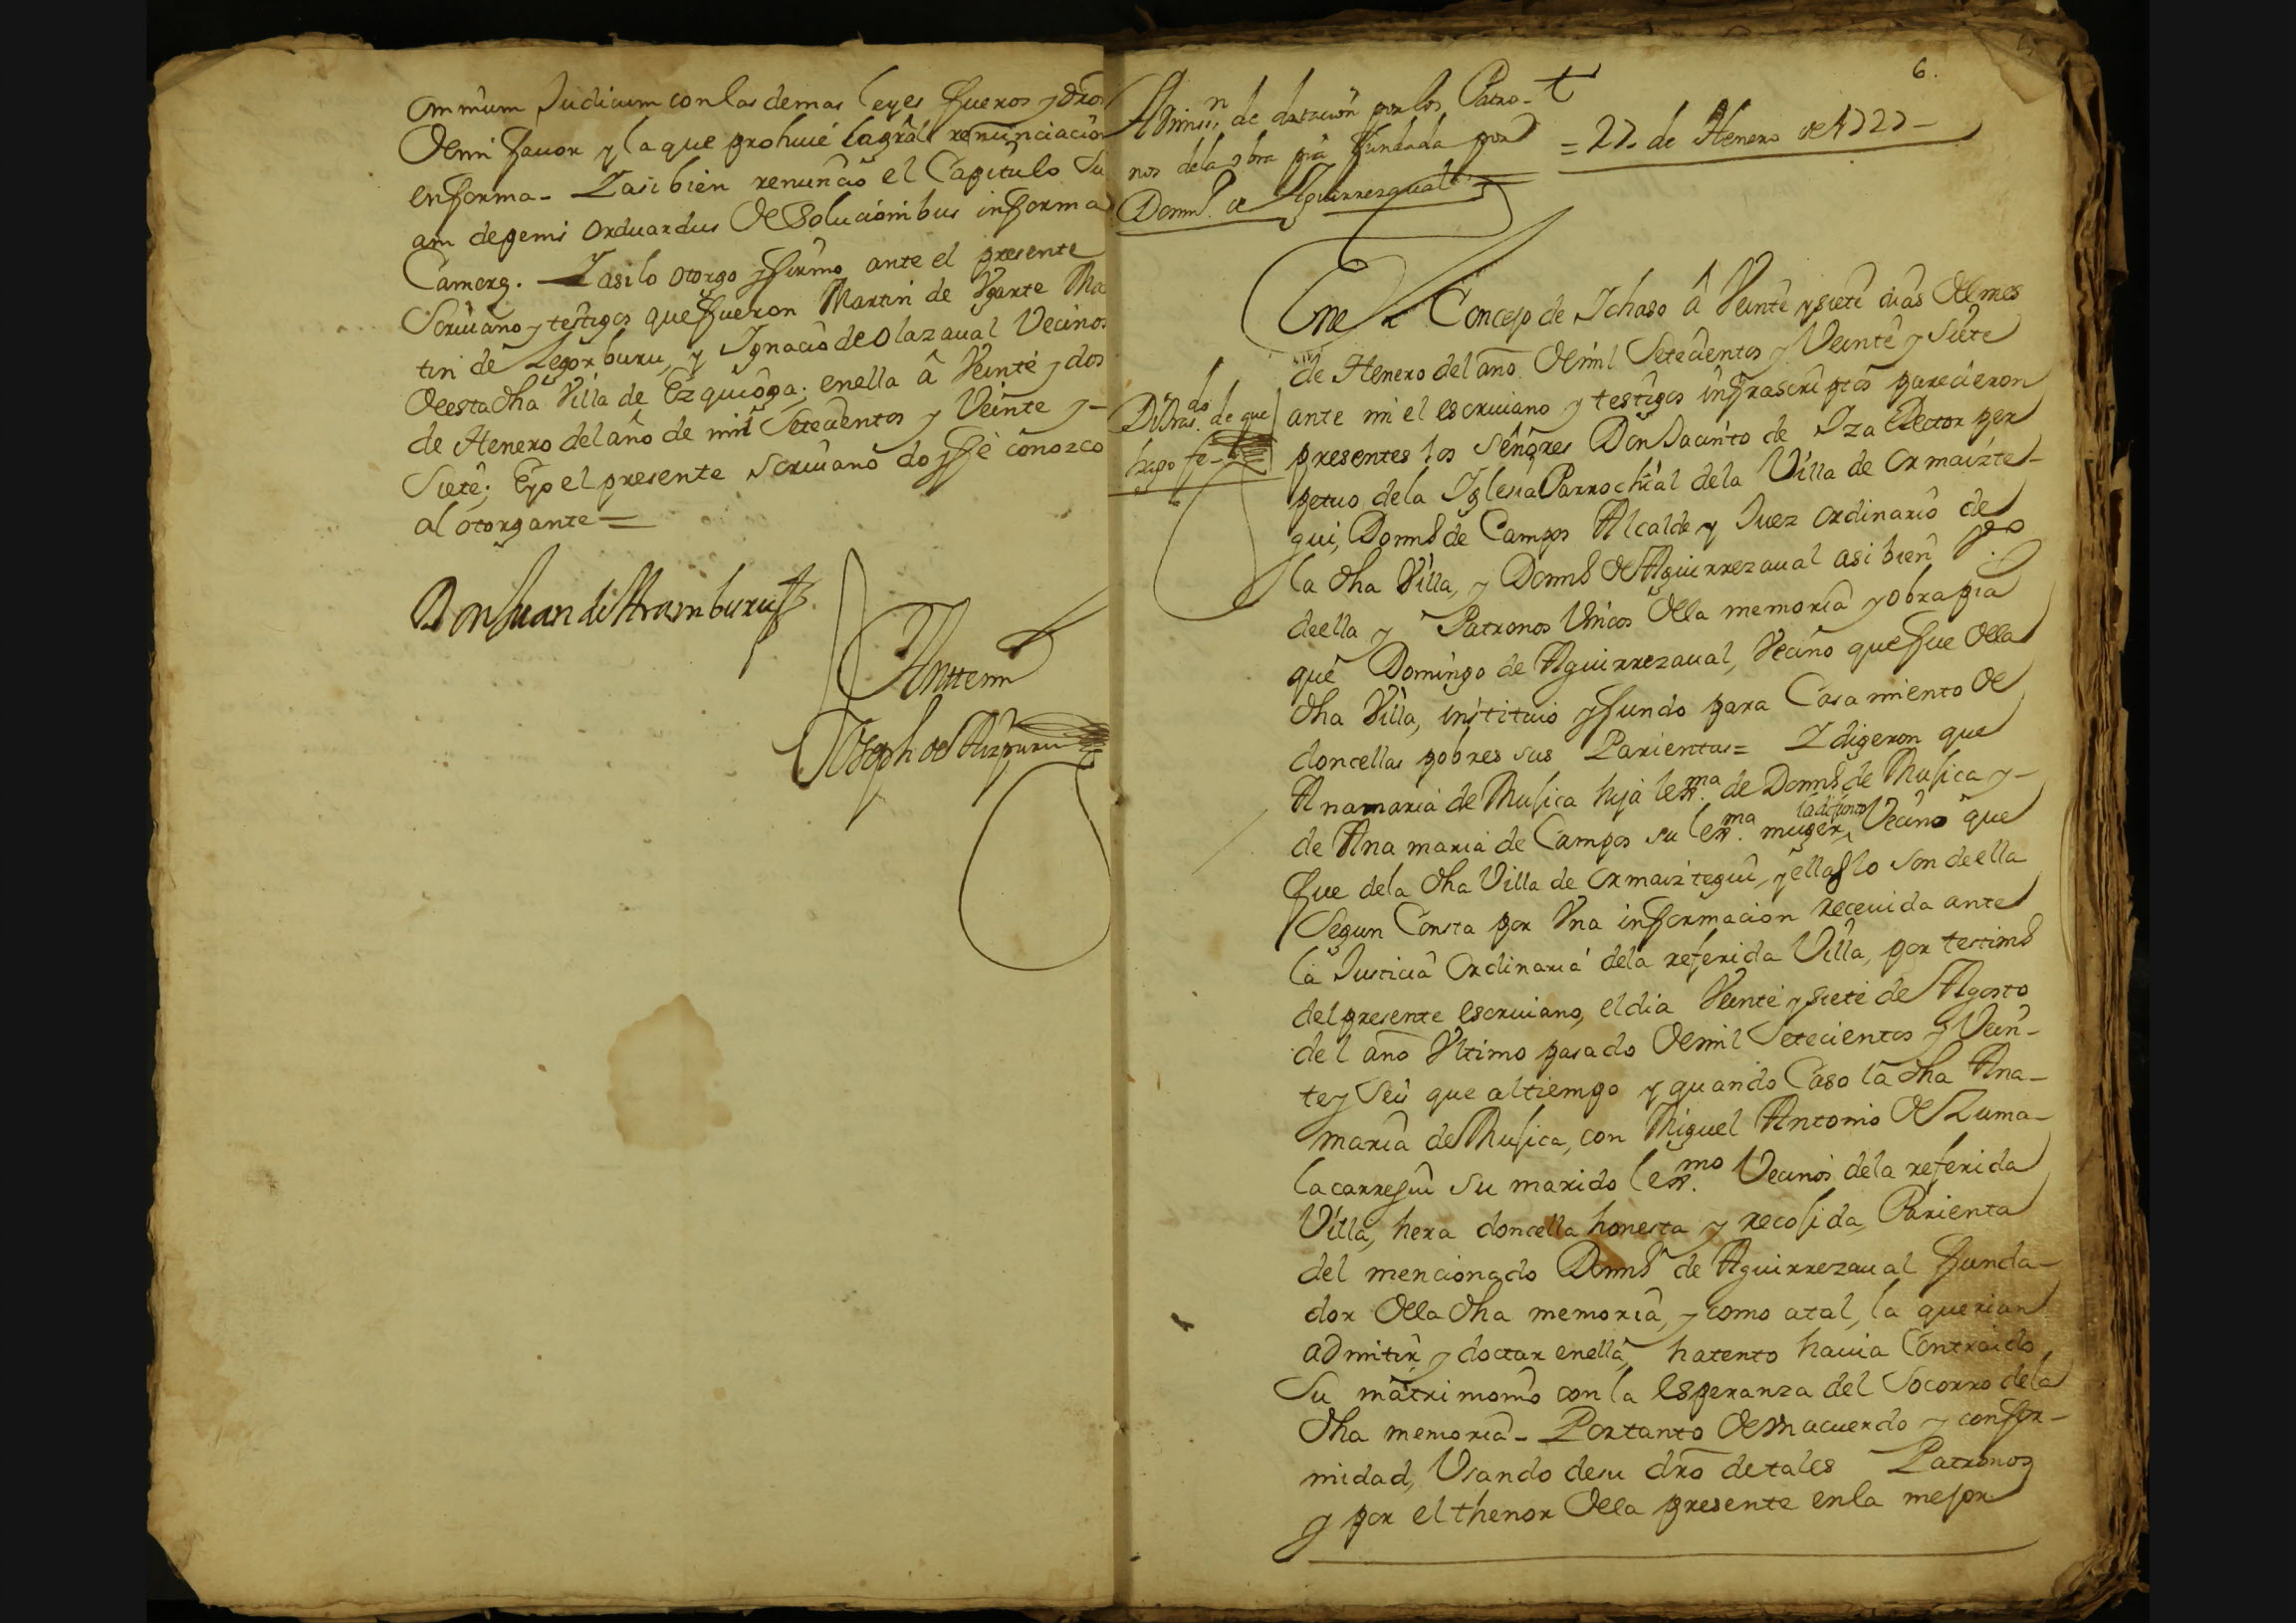 Omnium Judicum con las demas leyes fueros y dros
de mi favor y la que prohiue la gral renunciacion
en forma - Y asi bien renuncio el Capitulo Su
am de penis Orduardus de Solucionibus in forma
Camerę. - Y asi lo otorgo y firmo ante el presente
Scriuano y testigos que fueron Martin de Vgarte Ma
tin de Legorburu, y Ignacio de Olazaual Vecinos
de esta dha Villa de Ezquioga; en ella â Veinte y dos
de Henero del año de mil Setecientos y Veinte y -
Siete; E yo el presente Scriuano doy fè conozco
al otorgante =
Don Juan de Aramburu
Anttemi
Joseph de Aizpuru
6.
Admisn. de datacion por los Patro-
nos de la obra pia fundada por
Domo. de Aguirrezaual
= 27 de Henero de 1727 -
En el Concejo de Ichaso â Veinte y siete dias del mes
de Henero del año de mil Setecientos y Veinte y Siete
ante mi el escriuano y testigos infrascriptos parecieron
presentes los Señores Don Jacinto de Iza Rector per
petuo de la Iglesia Parrochial de la Villa de Ormaizte-
gui, Domo. de Campos Alcalde y Juez ordinario de
la dha Villa, y Domo. de Aguirrezaual asi bien Vzo
de ella y Patronos Vnicos de la memoria y obra pia
que Domingo de Aguirrezaual, Vecino que fue de la
dha Villa, instituio y fundo para Casamiento de
doncellas pobres sus Parientas = Y digeron que
Ana maria de Musica hija lexma. de Domo. de Musica y -
de Ana maria de Campos su lexma. muger, Vecino que
la difunta
fue de la dha Villa de Ormaiztegui, y ella lo son de ella
Segun Consta por Vna informacion receuida ante
la Justicia Ordinaria de la referida Villa, por testimo
del presente escriuano, el dia Veinte y siete de Agosto
del año Vltimo pasado de mil Setecientos y Vein-
te y Seis que al tiempo y quando Caso la dha Ana-
maria de Musica, con Miguel Antonio de Zuma-
lacarregui su marido lexmo. Vecinos de la referida
Villa, hera doncella honesta y recojida, Parienta
del mencionado Domo. de Aguirrezaual funda-
dor de la dha memoria, y como a tal, la querian
admitir y doctar en ella, hatento hauia Contraido
su matrimonio con la esperanza del Socorro de la
dha memoria - Por tanto de vn acuerdo y confor-
midad, Vsando de su dro de tales Patronos
y por el thenor de la presente en la mejor